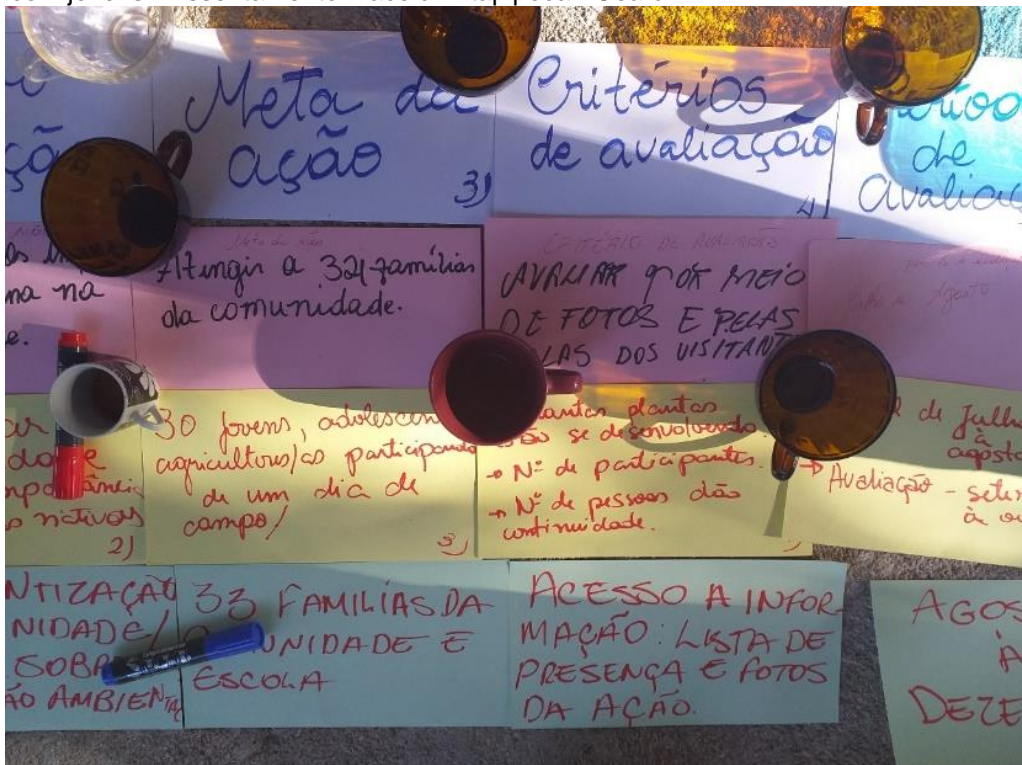 Meta da
ação
3)
Critérios
de avaliação
4)
de
Avaliaç
Meta da ação
Atingir a 321 famílias
da comunidade.
CRITÉRIO DE AVALIAÇÃO
AVALIAR POR MEIO
DE FOTOS E PELAS
LAS DOS VISITANT
Agosto
na na
e.
30 jovens, adolescen
agricultores/as participando
de um dia de
campo/
3)
plantas
se desenvolvendo.
→ Nº de participantes.
→ Nº de pessoas dão
continuidade.
de Julho
à
agosto
→ Avaliação - sete
à ou
nativos
2)
NTIZAÇÃO
NIDADE/
SOBR
ÃO AMBIENTAL
33 FAMILIAS DA
UNIDADE E
ESCOLA
ACESSO A INFOR-
MAÇÃO: LISTA DE
PRESENÇA E FOTOS
DA AÇÃO.
AGOS
À
DEZE